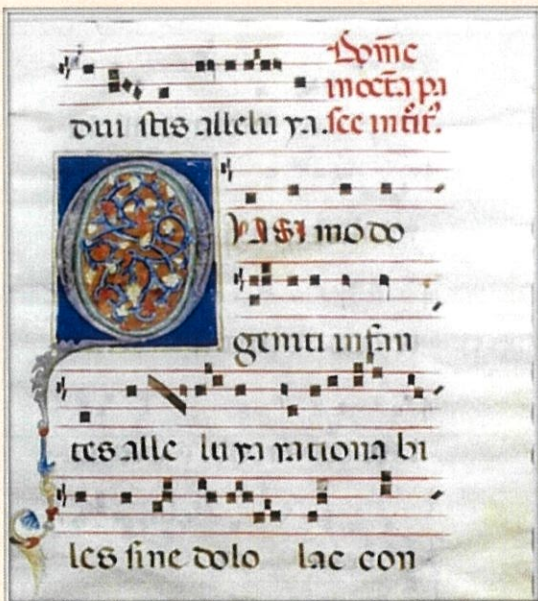 Dom̄c
in oct̄a pa
dui stis allelu ya. sce int̄it̄.
Quasi modo
geniti infan
tes alle lu ya rationa bi
les sine dolo lac con